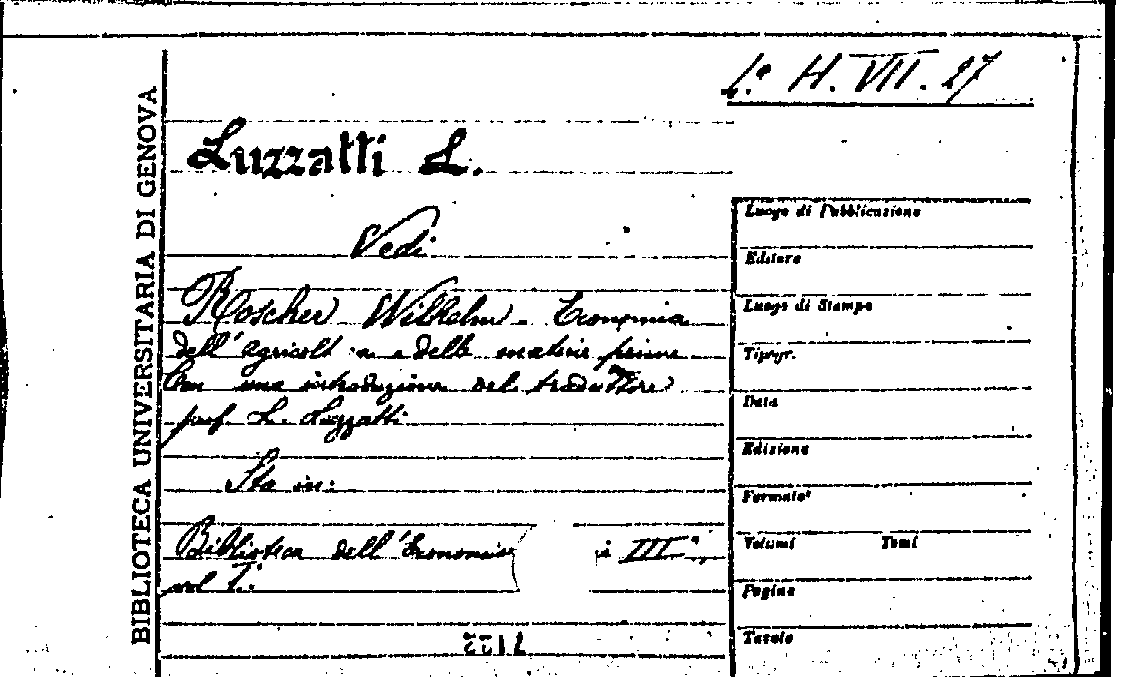 1.° H. VII. 27
BIBLIOTECA UNIVERSITARIA DI GENOVA
Luzzatti L.
Vedi
Roscher Wilhelm - Economia
dell'agricolt a e delle materie prime
Con una introduzione del traduttore
prof. L. Luzzatti
Sta in:
Biblioteca dell'Economis III.a,
vol I.
Luogo di Pubblicazione
Editore
Luogo di Stampa
Tipogr.
Data
Edizione
Formato
Volumi Tomi
Pagine
Tavole